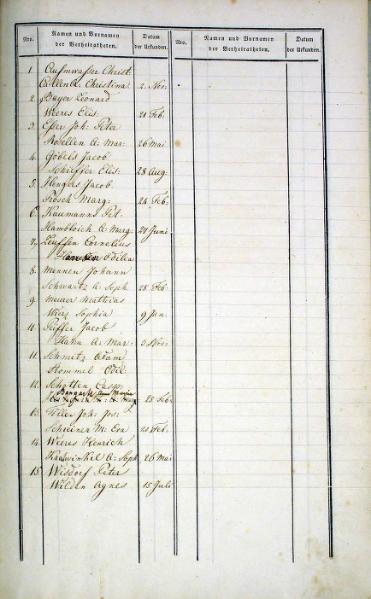 Nro.
Namen und Vornamen
der Verheiratheten.
Datum
der Urkunden.
Nro.
Namen und Vornamen
der Verheiratheten.
Datum
der Urkunden.
1 Christ.
A. Christina 2 Nov.
2 Bayer Leonard
Weeres Elis. 21 Feb.
3 Esser Joh. Peter
A: Mar: 26 Mai
4 Göbels Jacob
Schieffer Elis: 28 Aug:
5 Hengers Jacob
Frosch Marg: 24 Feb.
6 Kaumanns Pet.
Hambloch A: Marg: 20 Juni
7 Leuffen Cornelius
Odilia
8 Mennen Johann
Schwartz A: Soph. 28 Feb.
9 Meurer Mathias
Sophia 9 Jan.
Jacob
Hahn A: Mar: 3 Nov.
11 Schmitz Adam
Hommel Odil:
Schotten Casp:
Maria
18 Feb.
13 Joh: Jos:
Scheuren M: Eva 20 Feb.
14 Weeres Henrich
A: Soph. 26 Mai
15 Wisdorf Peter
Wilden Agnes 15 Juli